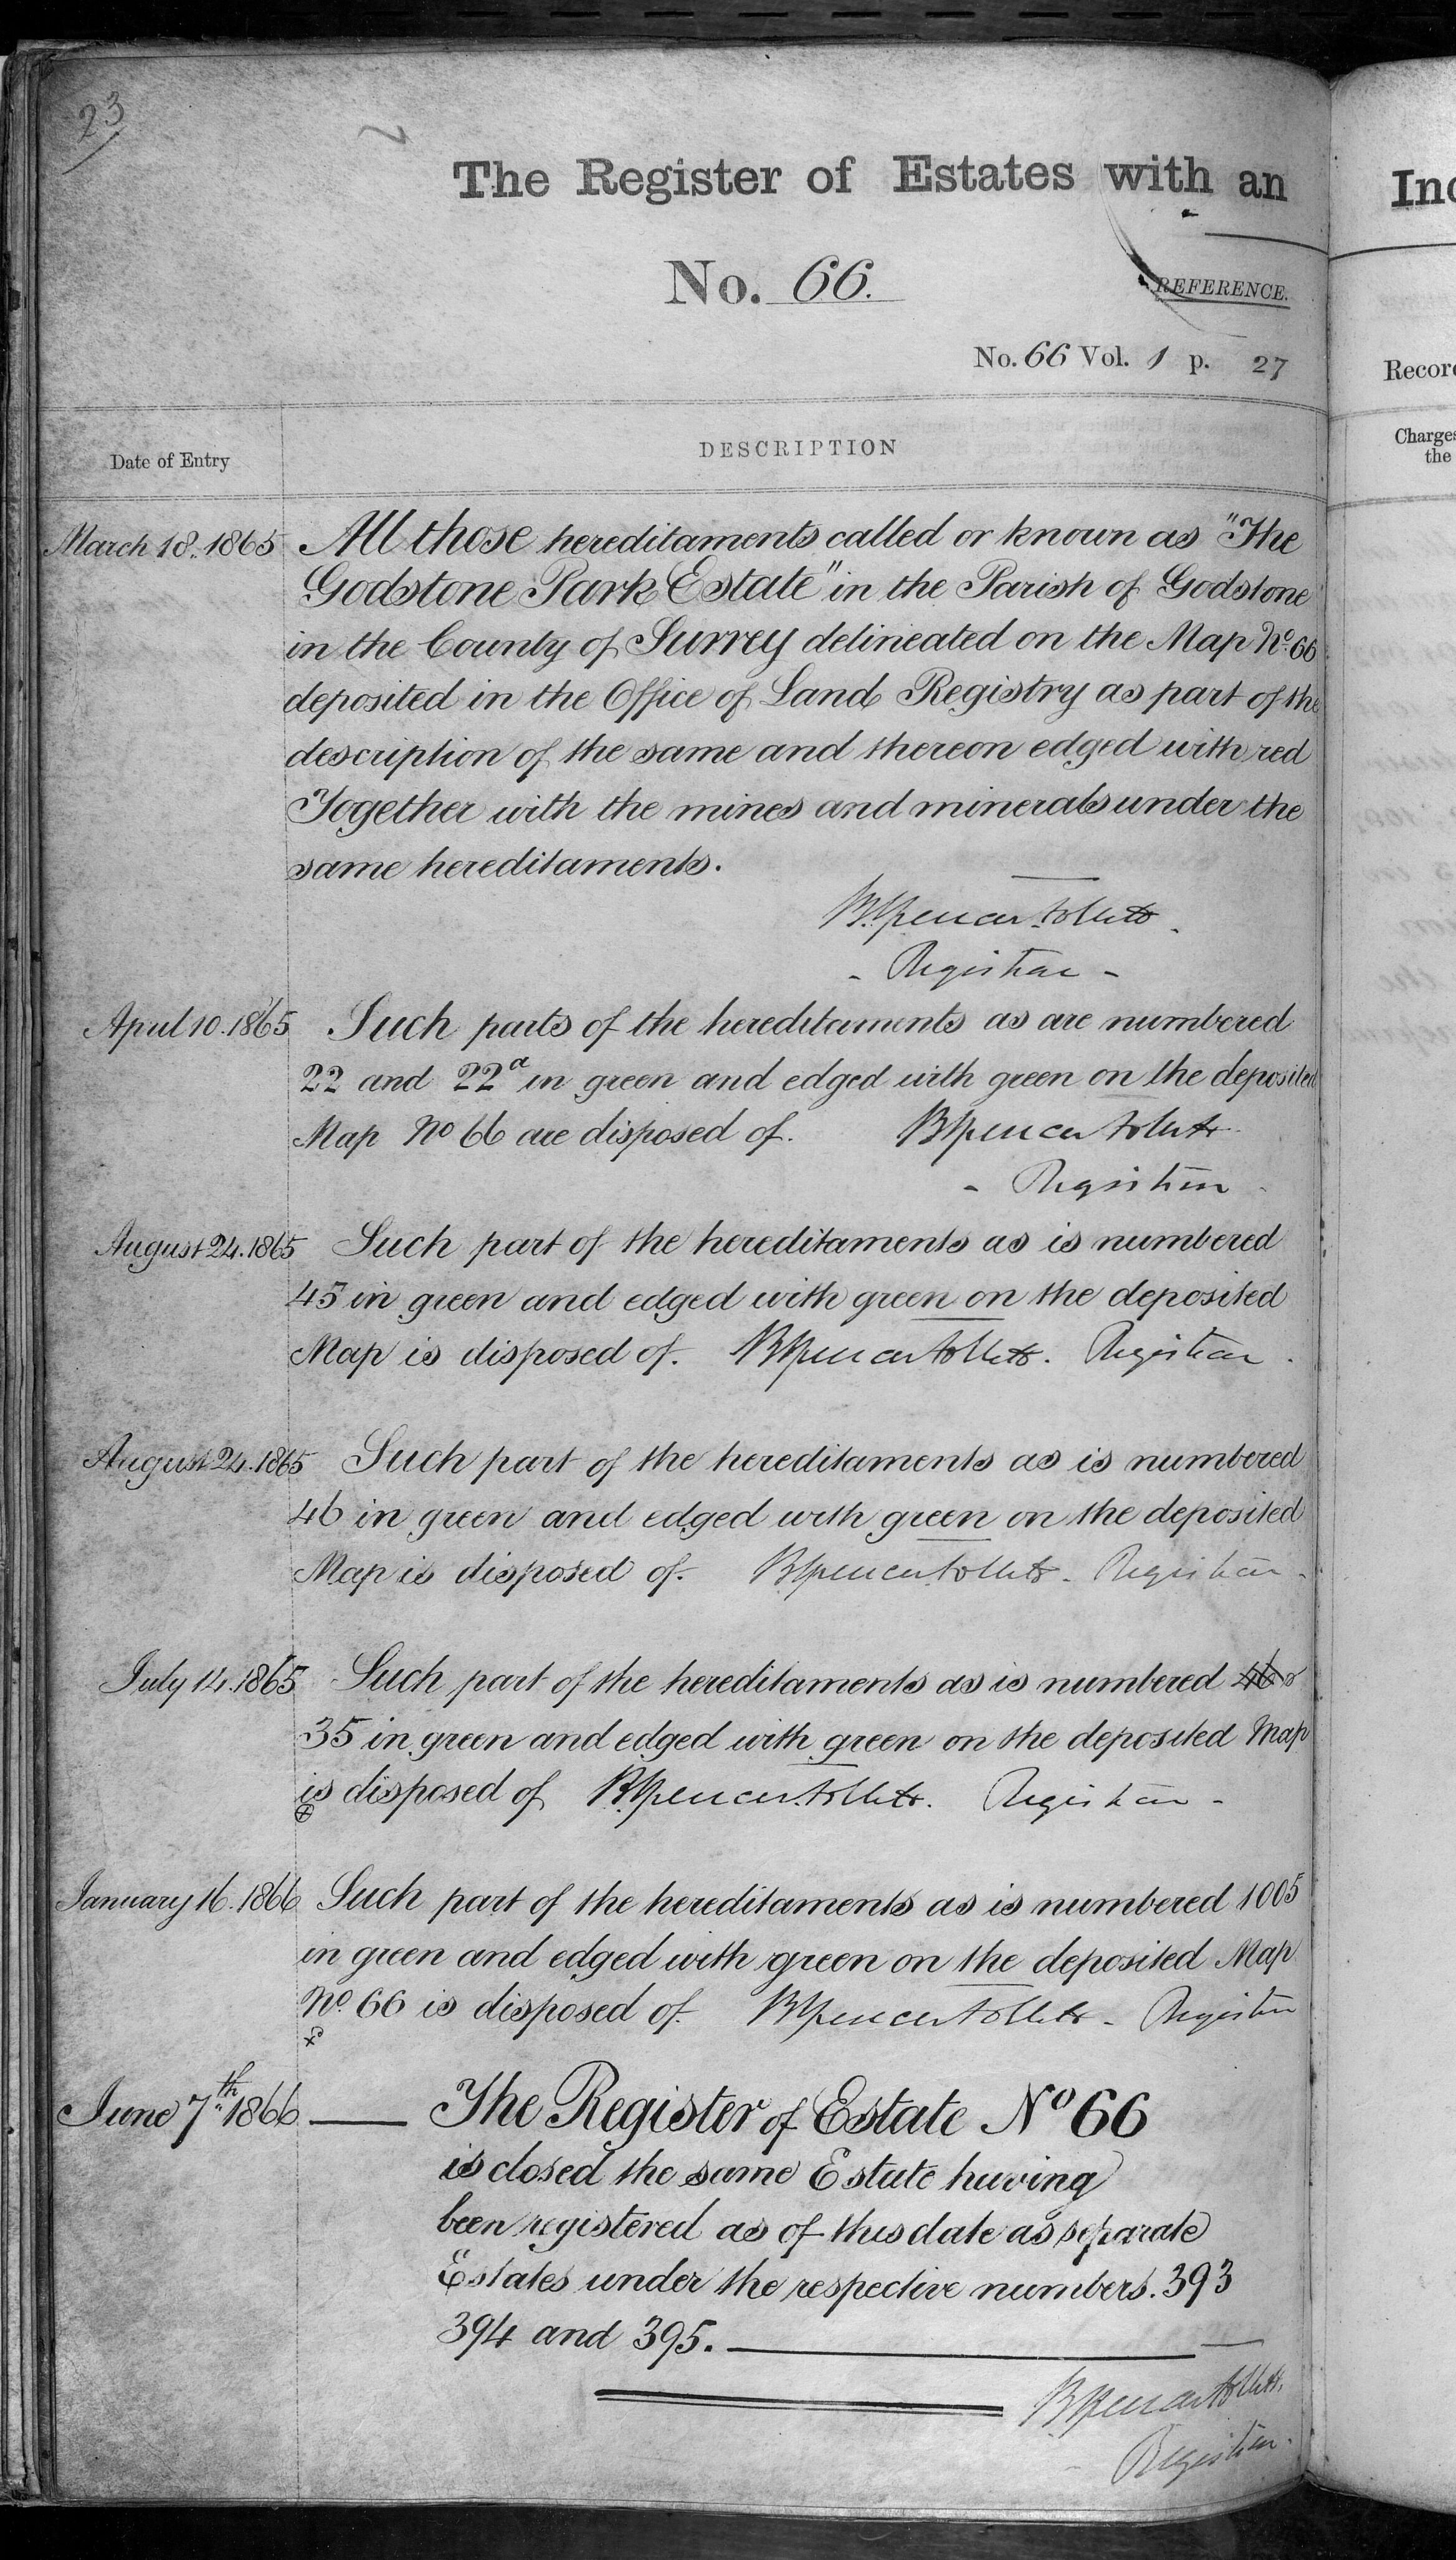 23
The Register of Estates with an
Ind
No. 66.
REFERENCE.
No. 66 Vol. 1 p. 27
Record
Charges
the
Date of Entry
DESCRIPTION
March 18. 1865 All those hereditaments called or known as "The
Godstone Park Estate" in the Parish of Godstone
in the County of Surrey delineated on the Map No. 66
deposited in the Office of Land Registry as part of the
description of the same and thereon edged with red
Together with the mines and minerals under the
same hereditaments.
B Spencer Follett
- Registrar -
April 10. 1865 Such parts of the hereditaments as are numbered
22 and 22a in green and edged with green on the deposited
Map No 66 are disposed of. B Spencer Follett
- Registrar -
August 24. 1865 Such part of the hereditaments as is numbered
45 in green and edged with green on the deposited
Map is disposed of. B Spencer Follett. Registrar.
August 24. 1865 Such part of the hereditaments as is numbered
46 in green and edged with green on the deposited
Map is disposed of. B Spencer Follett - Registrar -
July 14. 1865 Such part of the hereditaments as is numbered
35 in green and edged with green on the deposited Map
is disposed of B Spencer Follett. Registrar -
January 16. 1866 Such part of the hereditaments as is numbered 1005
in green and edged with green on the deposited Map
No. 66 is disposed of. B Spencer Follett - Registrar
June 7th 1866 The Register of Estate No 66
is closed the same Estate having
been registered as of this date as separate
Estates under the respective numbers. 393
394 and 395.
B Spencer Follett.
Registrar.